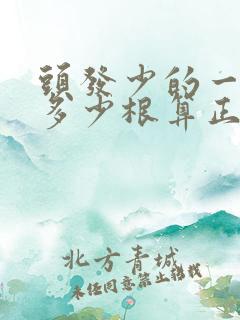 頭發少的一
多少根算正
北方青城
未经同意禁止转载